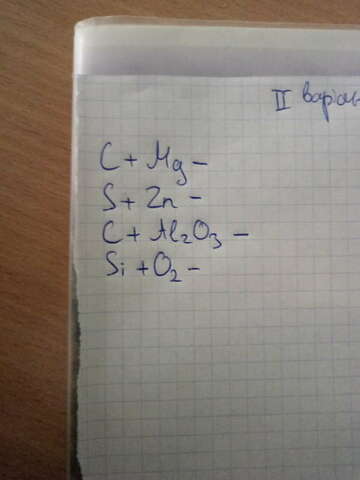 II варіан
C + Mg –
S + Zn –
C + Al₂O₃ –
Si + O₂ –